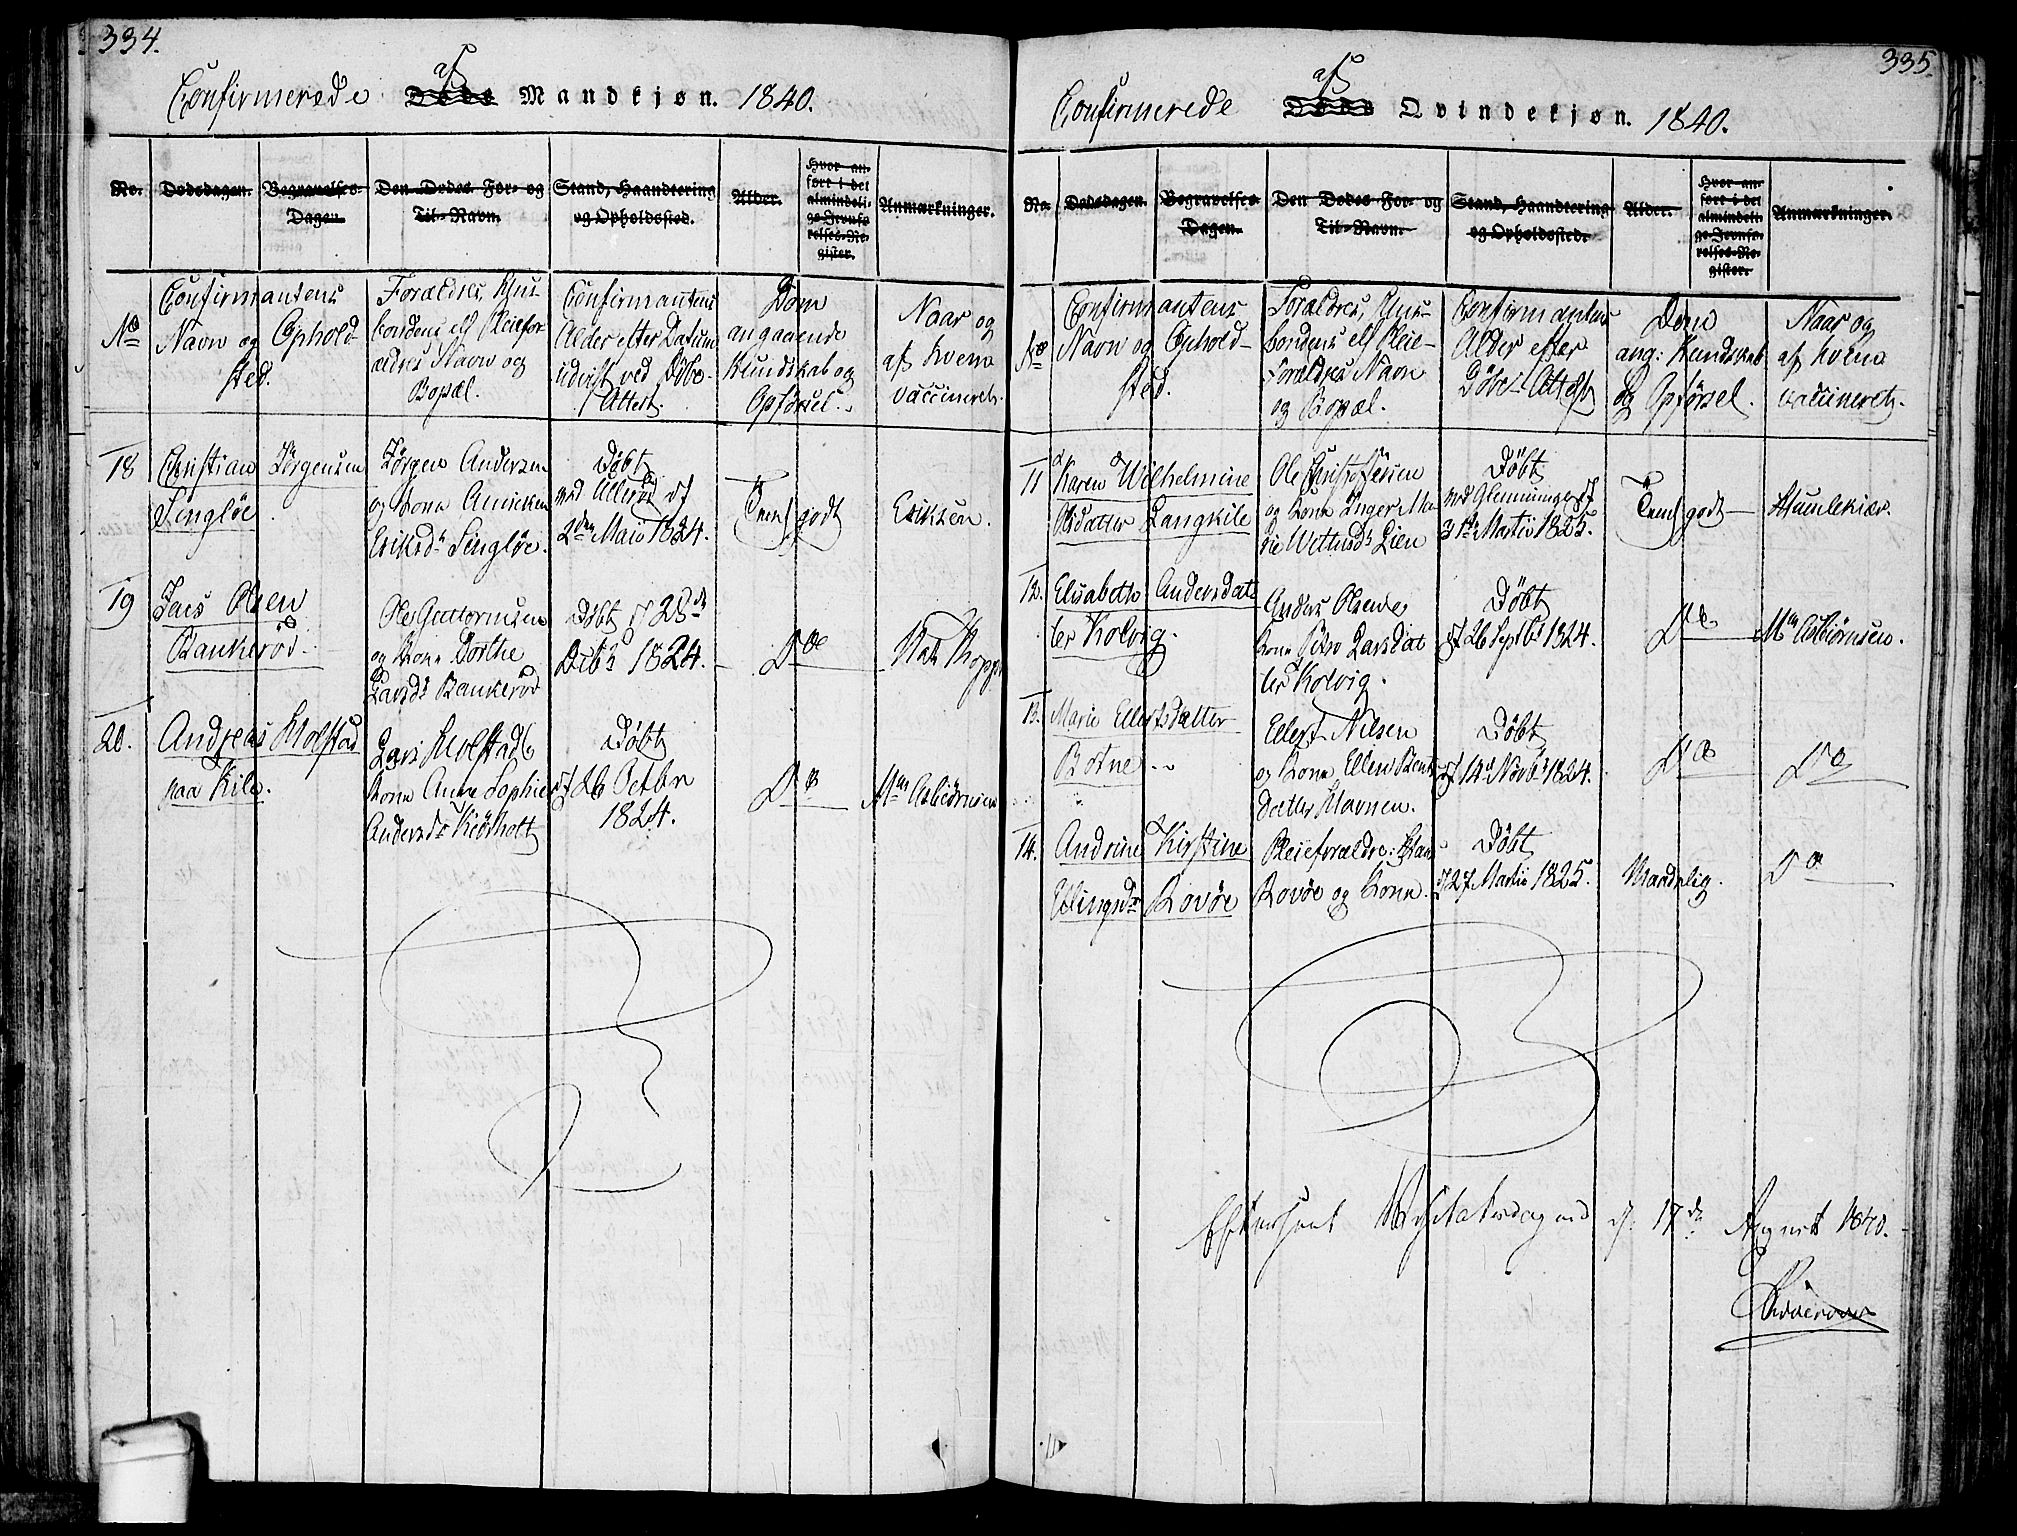 334.
Confirmerede af Døde Mandkjøn. 1840.
No.
Dødsdagen.
Begravelses-
Dagen.
Den Dødes For- og
Til-Navn.
Stand, Haandtering
og Opholdssted.
Alder.
Hvor an-
ført i det
almindeli-
ge Jevnfø-
relses-Re-
gister.
Anmærkninger.
No
Confirmantens
Navn og Ophold-
sted.
Forældres, Hus-
bondens ell Pleiefor-
ældres Navn og
Bopæl.
Confirmantens
Alder efter Datum
udvist ved Døbe-
Attest.
Dom
angaaende
Kundskab og
Opførsel.
Naar og
af hvem
vaccineret.
18
Christian Jørgensen
Singløe.
Jørgen Andersen
og Kone Anniken
Eriksdr Singløe.
Døbt
ved Allerød d
2den Maio 1824.
Tem godt
Eriksen.
19
Lars Olsen
Bankerød.
Ole Guttormsen
og Kone Dorthe
Larsdr Bankerød
Døbt d 28de
Decbr 1824.
Do
Nat. Kopper
20.
Andreas Holstad
paa Kile.
Lars Holstad
Kone Anne Sophie
Andersdr Kiørholt
Døbt
d 26 Octbr
1824.
Do
Mm Asbiørnsen
335.
Confirmerede af Døde Qvindekjøn. 1840.
No.
Dødsdagen.
Begravelses-
Dagen.
Den Dødes For- og
Til-Navn.
Stand, Haandtering
og Opholdssted.
Alder.
Hvor an-
ført i det
almindeli-
ge Jevnfø-
relses-Re-
gister.
Anmærkninger.
No
Confirmantens
Navn og Ophold-
sted.
Forældres, Hus-
bondens ell Pleie-
Forældres Navn
og Bopæl.
Confirmantens
Alder efter
Døbe-Attest
Dom
ang: Kundskab
og Opførsel.
Naar og
af hvem
vaccineret.
11
Karen Wilhelmine
Olsdatter Langkile
Ole Christofersen
og Kone Inger Ma-
rie Wettusdr Lien
Døbt
ved Glemminge d
31te Martii 1825.
Tem godt
Humlekiær.
12.
Elisabeth Andersdat-
ter Kolvig.
Anders Olsen
Kone Larsdat-
ter Kolvig.
Døbt
d 26 Septbr 1824.
Do
Mm Asbiørnsen.
13.
Marie Ellertsdatter
Botne.
Ellert Nilsen
og Kone Ellen Bent
datter Havnen.
Døbt
d 14d Novbr 1824.
Do
Do
14.
Andrine Kirstine
Rovøe
Pleieforældre: Hans
Rovøe og Kone.
Døbt
d 27 Martii 1825.
Maadelig.
Do
Efterseet Visitatsdagen d. 17de August 1840.